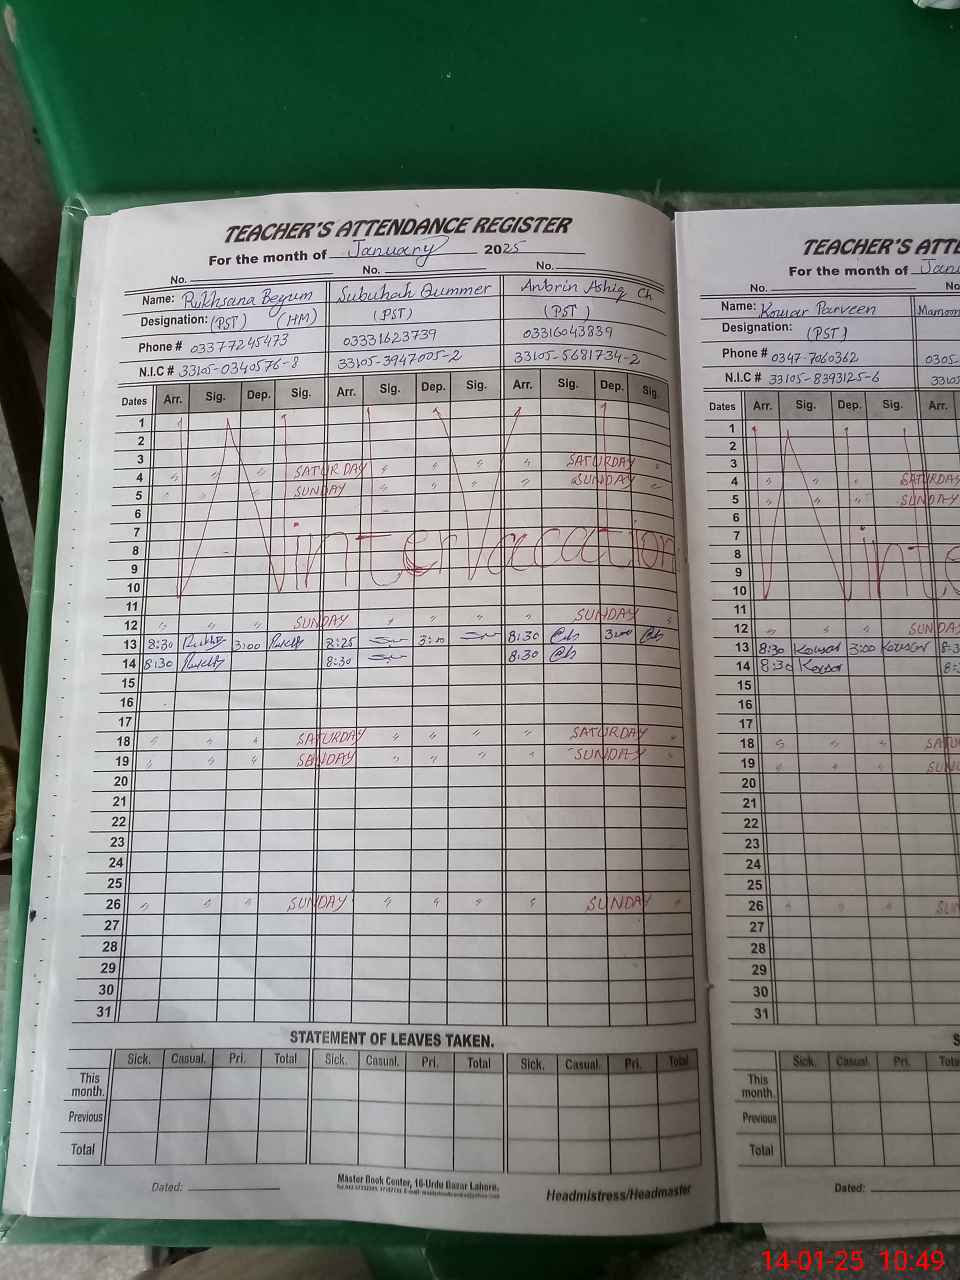 TEACHER'S ATTENDANCE REGISTER
For the month of January 2025
No. No. No.
Name: Rukhsana Begum Subuhah Qummer Anbrin Ashiq Ch
Designation: (PST) (HM) (PST) (PST)
Phone # 03377245473 03331623739 03316043839
N.I.C # 33105-0340576-8 33105-3947005-2 33105-5681734-2
Dates Arr. Sig. Dep. Sig. Arr. Sig. Dep. Sig. Arr. Sig. Dep. Sig.
1
2
3
4 " " " SATURDAY " " " " SATURDAY "
5 " " " SUNDAY " " " " SUNDAY "
6
7
Winter Vacation
8
9
10
11
12 " " " SUNDAY " " " " SUNDAY "
13 8:30 3:00 8:25 3:00 8:30 3:00
14 8:30 8:30 8:30
15
16
17
18 " " " SATURDAY " " " " SATURDAY "
19 " " " SUNDAY " " " " SUNDAY "
20
21
22
23
24
25
26 " " " SUNDAY " " " " SUNDAY "
27
28
29
30
31
STATEMENT OF LEAVES TAKEN.
Sick. Casual. Pri. Total Sick. Casual. Pri. Total Sick. Casual. Pri. Total
This month.
Previous
Total
Dated:
Master Book Center, 16-Urdu Bazar Lahore.
Headmistress/Headmaster
TEACHER'S ATTE
For the month of Janu
No. No
Name: Kowsar Parveen Mamoon
Designation: (PST)
Phone # 0347-7060362 0305-
N.I.C # 33105-8393125-6 33105
Dates Arr. Sig. Dep. Sig. Arr.
1
2
3
4 " " " SATURDAY
5 " " " SUNDAY
6
7
Winte
8
9
10
11
12 " " " SUNDA
13 8:30 Kousar 3:00 Kousar 8:3
14 8:30 Kousar 8:
15
16
17
18 " " " SATU
19 " " " SUN
20
21
22
23
24
25
26 " " " SUN
27
28
29
30
31
S
Sick. Casual. Pri. Tota
This month.
Previous
Total
Dated:
14-01-25 10:49